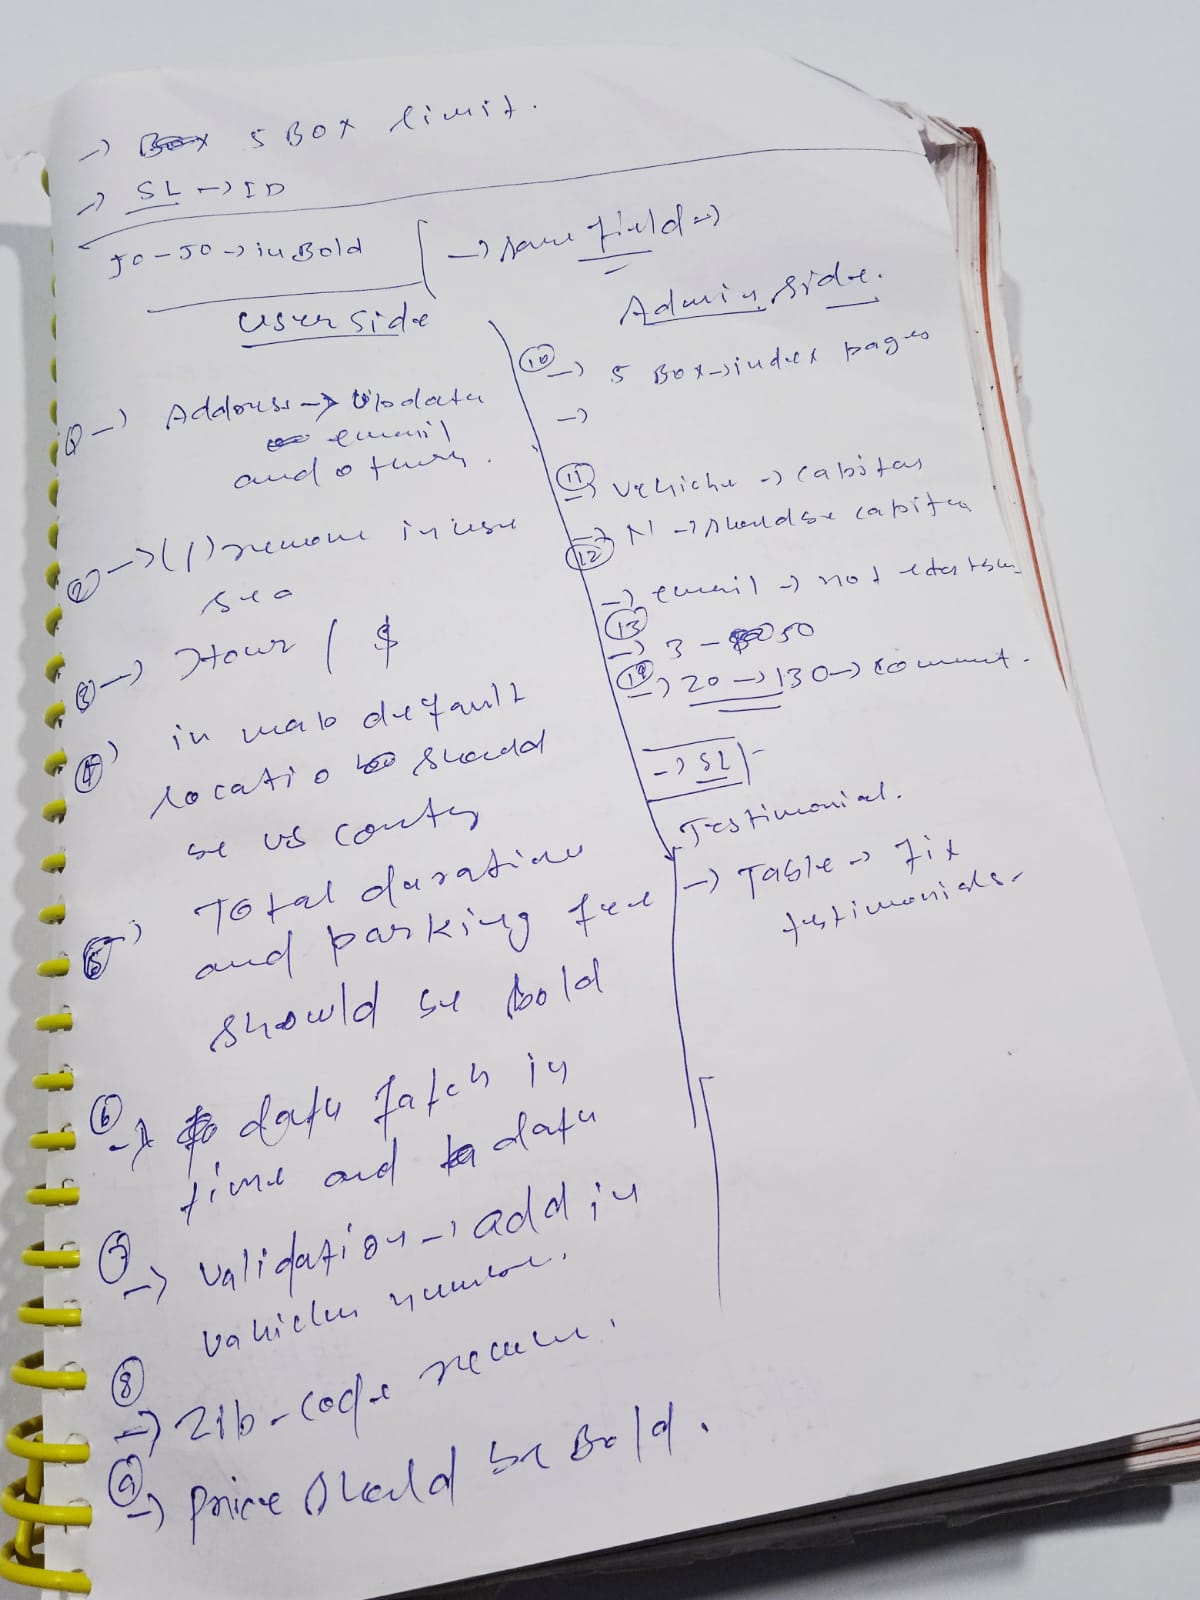 → 5 Box limit.
→ SL → ID
50-50 → in Bold
→ same field →
User side
① → Address → Update
email
and others.
② → (/) remove in use
③ → Hour / $
④ in map default
locatio should
be US
⑤ Total duration
and parking fee
should be bold
⑥ → data fatch in
time and data
⑦ → validation → add in
vahicles number.
⑧ → Zip-code
⑨ → price should be Bold.
Admin side.
⑩ → 5 Box → index pages
→
⑪ → Vehicle → capital
⑫ → N → should be capital
→ email → not
⑬ → 3 - 50
⑭ → 20 → 130 → comment.
→ SL
Testimonial.
→ Table → fix
testimonials.